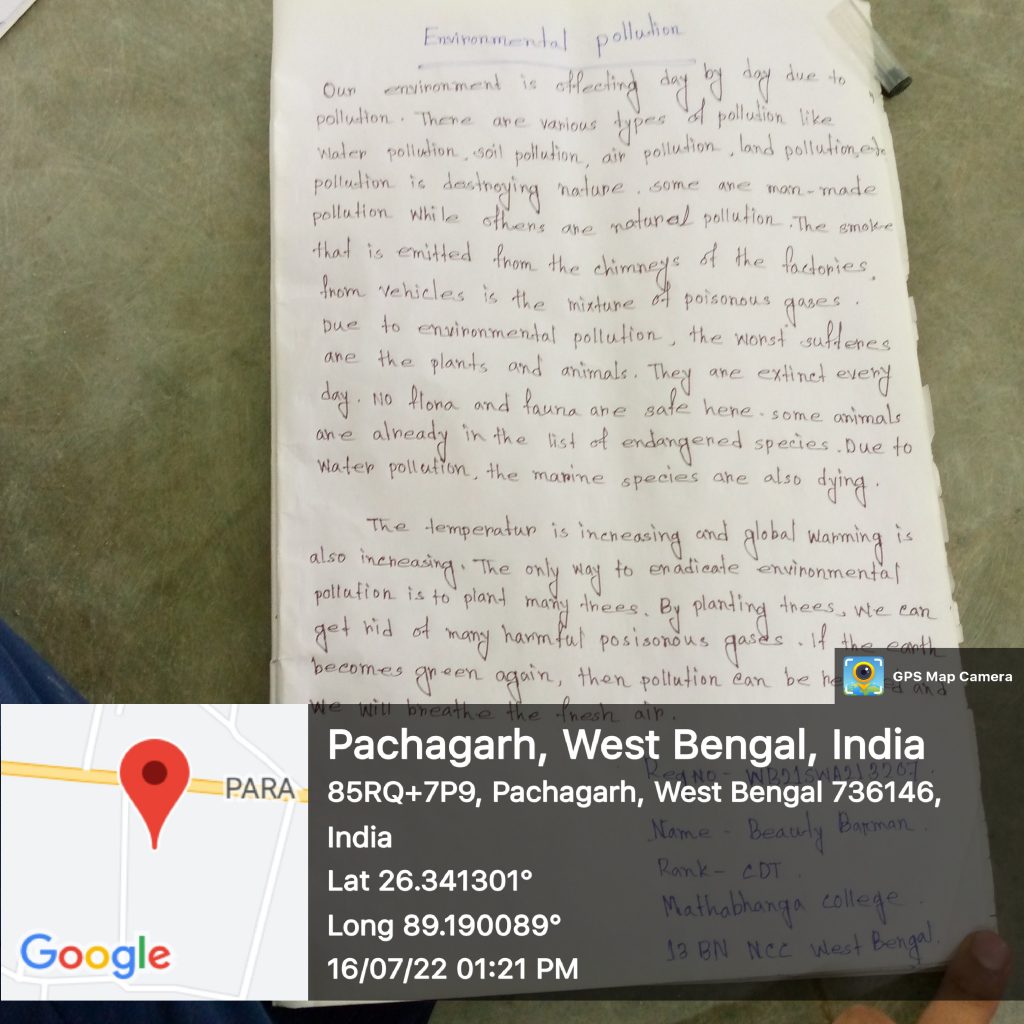 Environmental pollution
Our environment is effecting day by day due to
pollution. There are various types of pollution like
water pollution, soil pollution, air pollution, land pollution, etc
pollution is destroying nature. some are man-made
pollution while others are natural pollution. The smoke
that is emitted from the chimneys of the factories,
from vehicles is the mixture of poisonous gases.
Due to environmental pollution, the worst sufferes
are the plants and animals. They are extinct every
day. No flora and fauna are safe here. some animals
are already in the list of endangered species. Due to
water pollution, the marine species are also dying.
The temperatur is increasing and global warming is
also increasing. The only way to eradicate environmental
pollution is to plant many trees. By planting trees, we can
get rid of many harmful posisonous gases. If the earth
becomes green again, then pollution can be and
We will breathe the fresh air.
Reg No - WB21SWA213207.
Name - Beauly Barman.
Rank - CDT.
Mathabhanga college.
13 BN NCC West Bengal.
GPS Map Camera
PARA
Google
Pachagarh, West Bengal, India
85RQ+7P9, Pachagarh, West Bengal 736146,
India
Lat 26.341301°
Long 89.190089°
16/07/22 01:21 PM